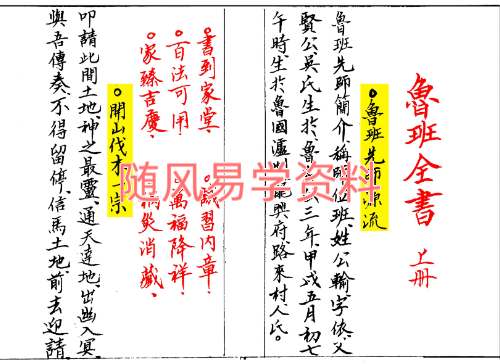 魯班全書 上册
。魯班先師源流
魯班先師簡介稱位班姓公輸字依父
賢公吳氏生於魯公三年甲戌五月初七
午時生於魯國瀘興府路來村人氏。
。書到家堂. 習内章.
。百法可用. 萬福降祥.
。家臻吉慶. 災消滅.
。開山伐木一宗
叩請此間土地神之最靈、通天達地、出幽入冥、
與吾傳奏、不得留停、信馬土地、前去迎請
随风易学资料